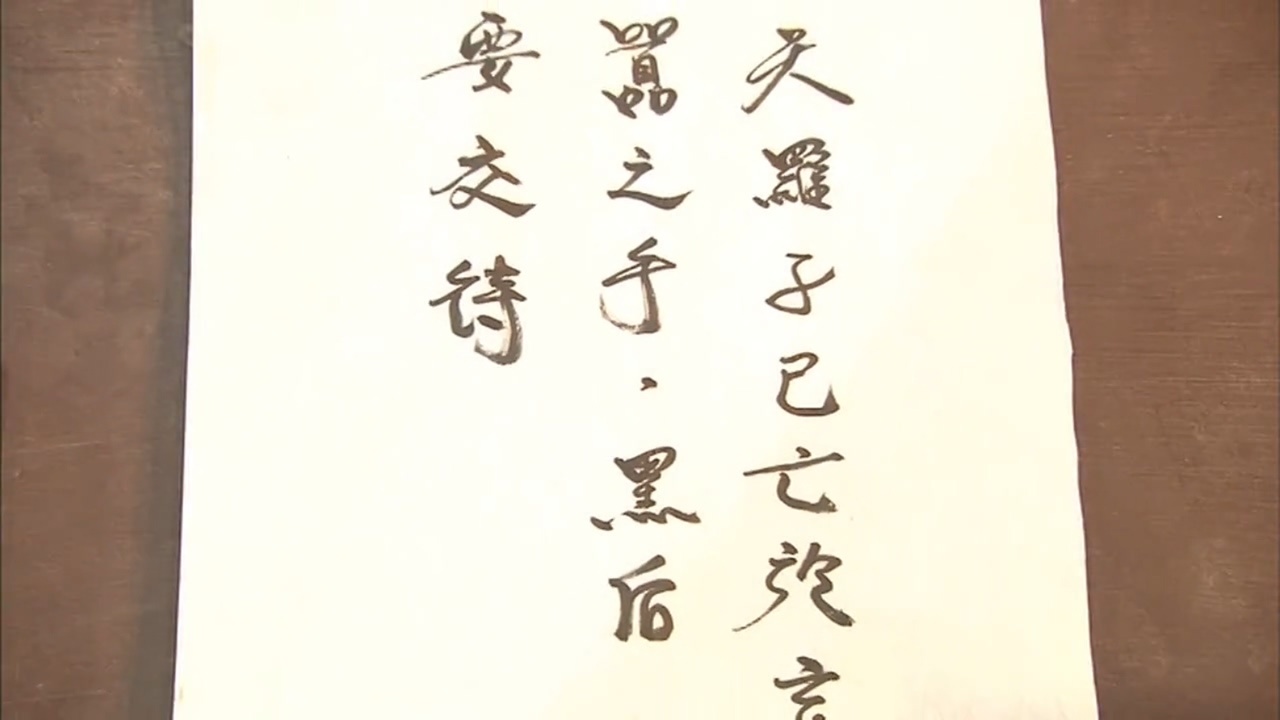 天羅子已亡於
囂之手·黑后
要交待